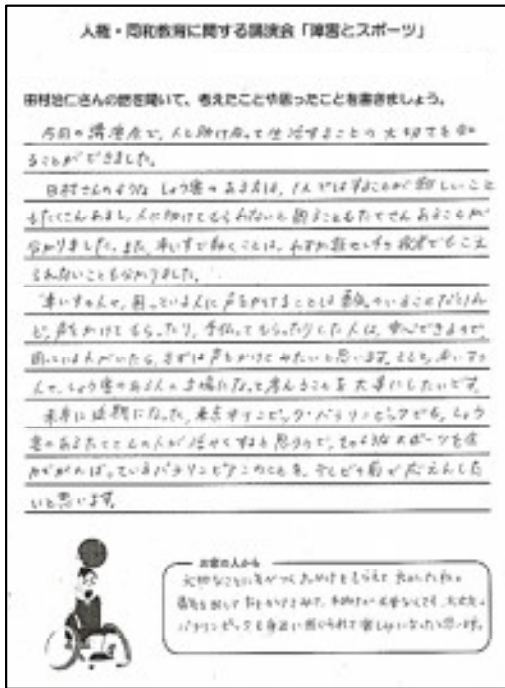 人権・同和教育に関する講演会「障害とスポーツ」
田村治仁さんの話を聞いて、考えたことや思ったことを書きましょう。
今日の講演会で、人と助け合って生活することの大切さを知
ることができました。
田村さんのようなしょう害のある方は、1人ではすることが難しいこと
もたくさんあるし、人に助けてもらわないと困ることもたくさんあることが
分かりました。また、車いすで動くことは、わずか数センチの段差でもこえ
られないことも分かりました。
車いすの人や、困っている人に声をかけることは勇気のいることだけれ
ど、声をかけてもらったり、手伝ってもらったりした人は、安心できるので、
困っている人がいたら、まずは声をかけてみたいと思います。そして、車いすの
人や、しょう害のある人の立場になって考えることを大事にしたいです。
来年に延期になった、東京オリンピック・パラリンピックでも、しょう
害のあるたくさんの人が活やくすると思うので、そのようなスポーツを
がんばっているパラリンピアンのことを、テレビの前で応えんした
いと思います。
お家の人から
大切なことに気がつくきっかけをもらえて良かったね。
勇気を出して声をかけてみて、大丈夫。
パラリンピックも身近に感じられて楽しみになったと思います。